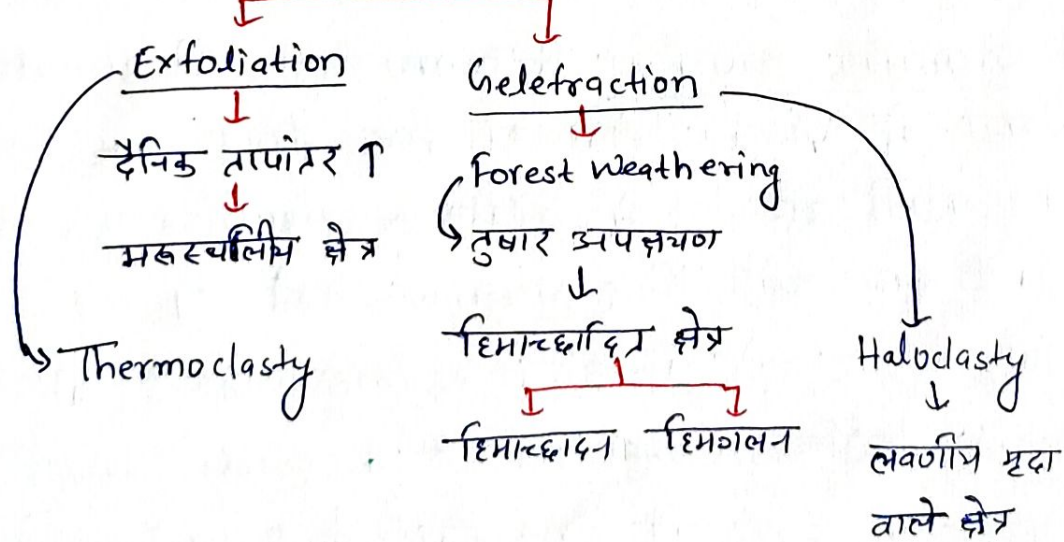 Exfoliation
दैनिक तापांतर ↑
मरूस्थलीय क्षेत्र
Thermoclasty
Gelefraction
Forest Weathering
तुषार अपक्षयण
हिमाच्छादित क्षेत्र
हिमाच्छादन हिमगलन
Haloclasty
लवणीय मृदा
वाले क्षेत्र